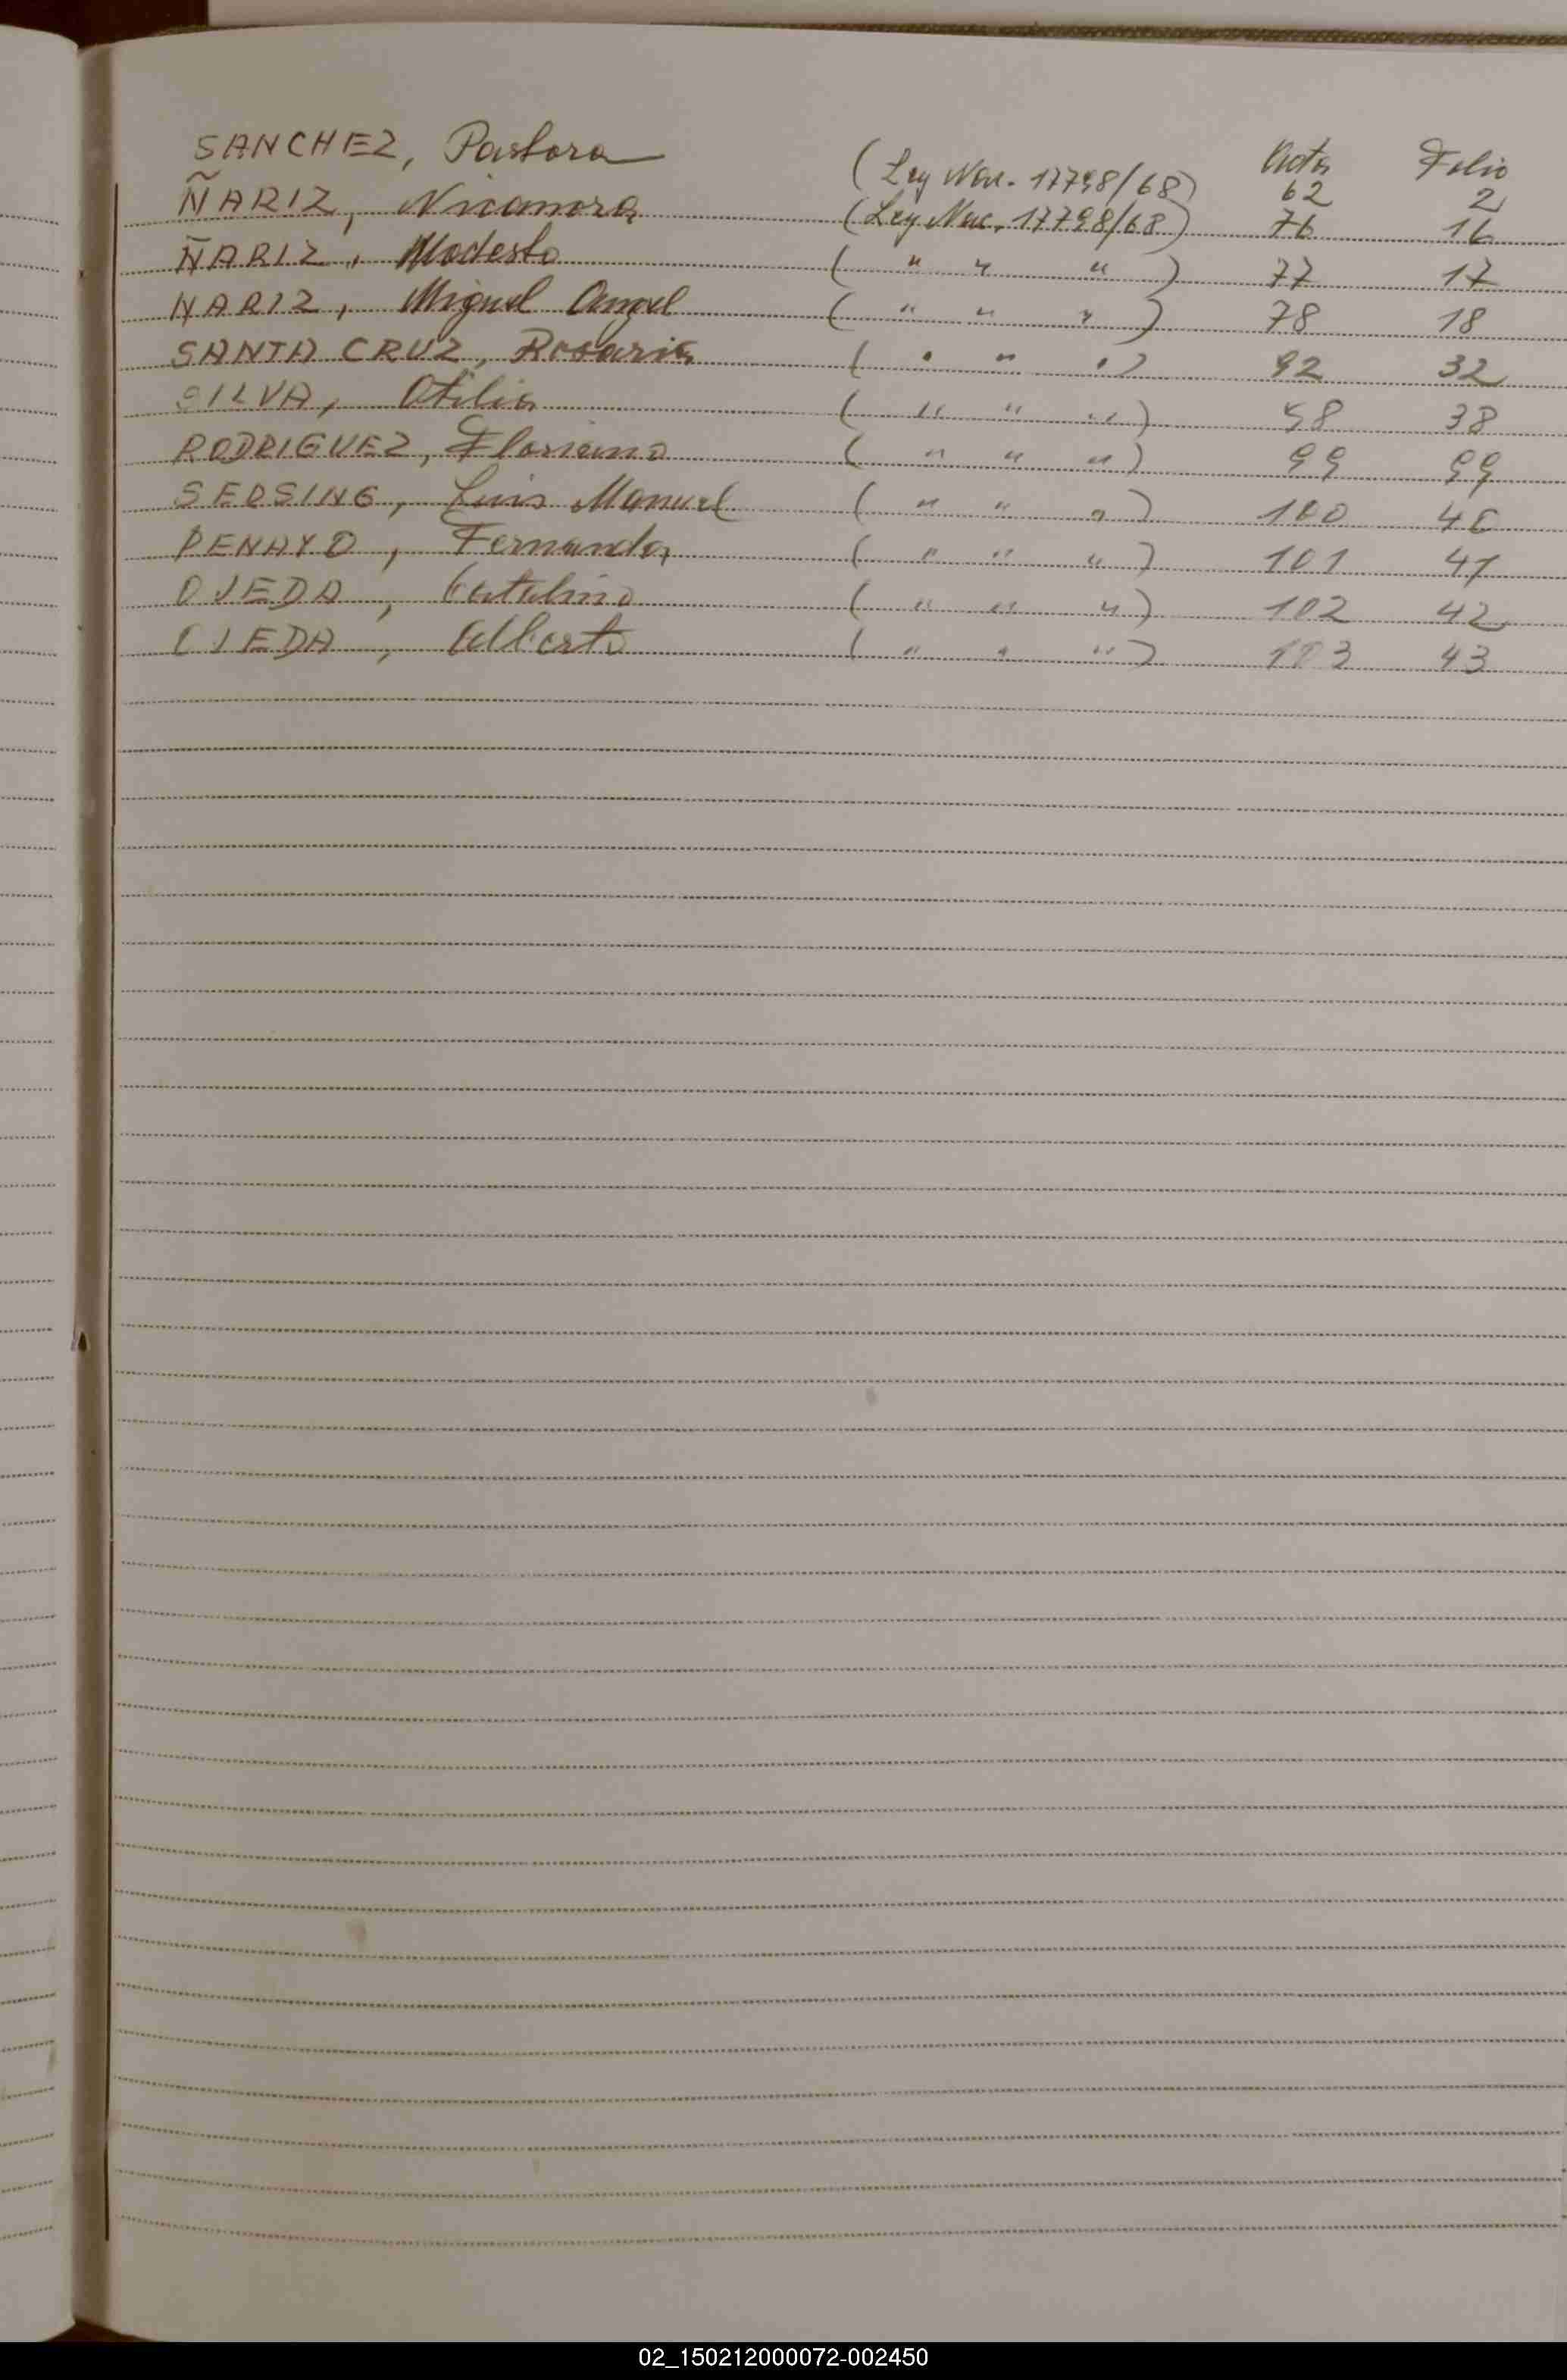 Acta Folio
SANCHEZ, Pastora (Ley Nac. 17798/68) 62 2
ÑARIZ, Nicanora (Ley Nac. 17798/68) 76 16
ÑARIZ, Modesto ( " " " ) 77 17
NARIZ, Miguel Angel ( " " " ) 78 18
SANTA CRUZ, Rosaria ( " " " ) 92 32
SILVA, Otilia ( " " " ) 98 38
RODRIGUEZ, Floriano ( " " " ) 99 99
SEOSING, Luis Manuel ( " " " ) 100 40
PENAYO, Fernanda ( " " " ) 101 41
OJEDA, Catalino ( " " " ) 102 42
OJEDA, Alberto ( " " " ) 103 43
02_150212000072-002450